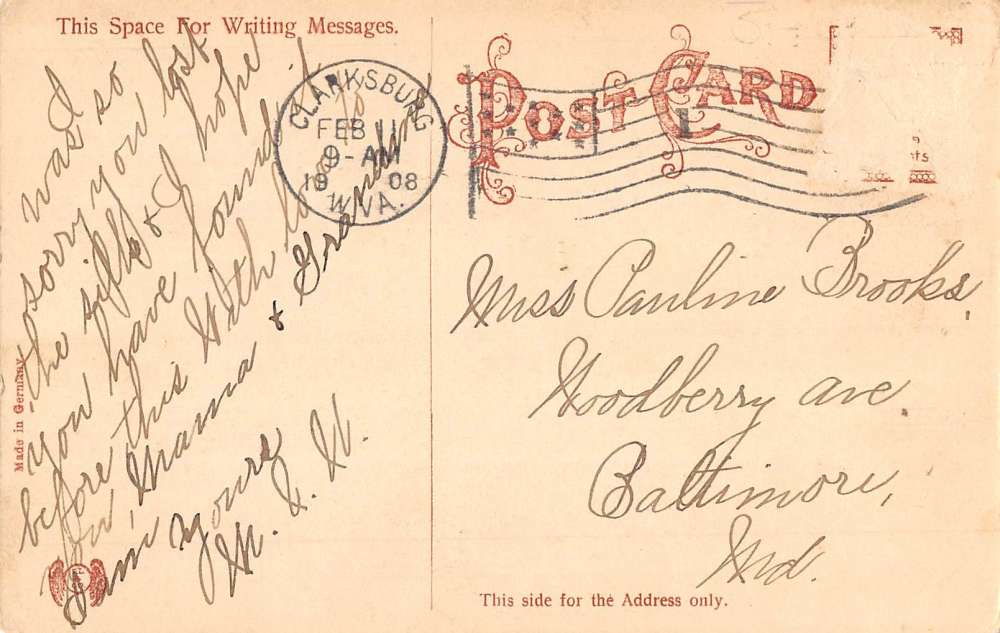 This Space For Writing Messages.
Was so
sorry you lost
the silk & I hope
you have found it
before this With love to
you, Mama & Grandma
I am yours
M. E. W.
Made in Germany
CLARKSBURG
FEB 11
9-AM
1908
W.VA.
POST CARD
1
Miss Pauline Brooks,
Woodberry ave.
Baltimore,
Md.
This side for the Address only.